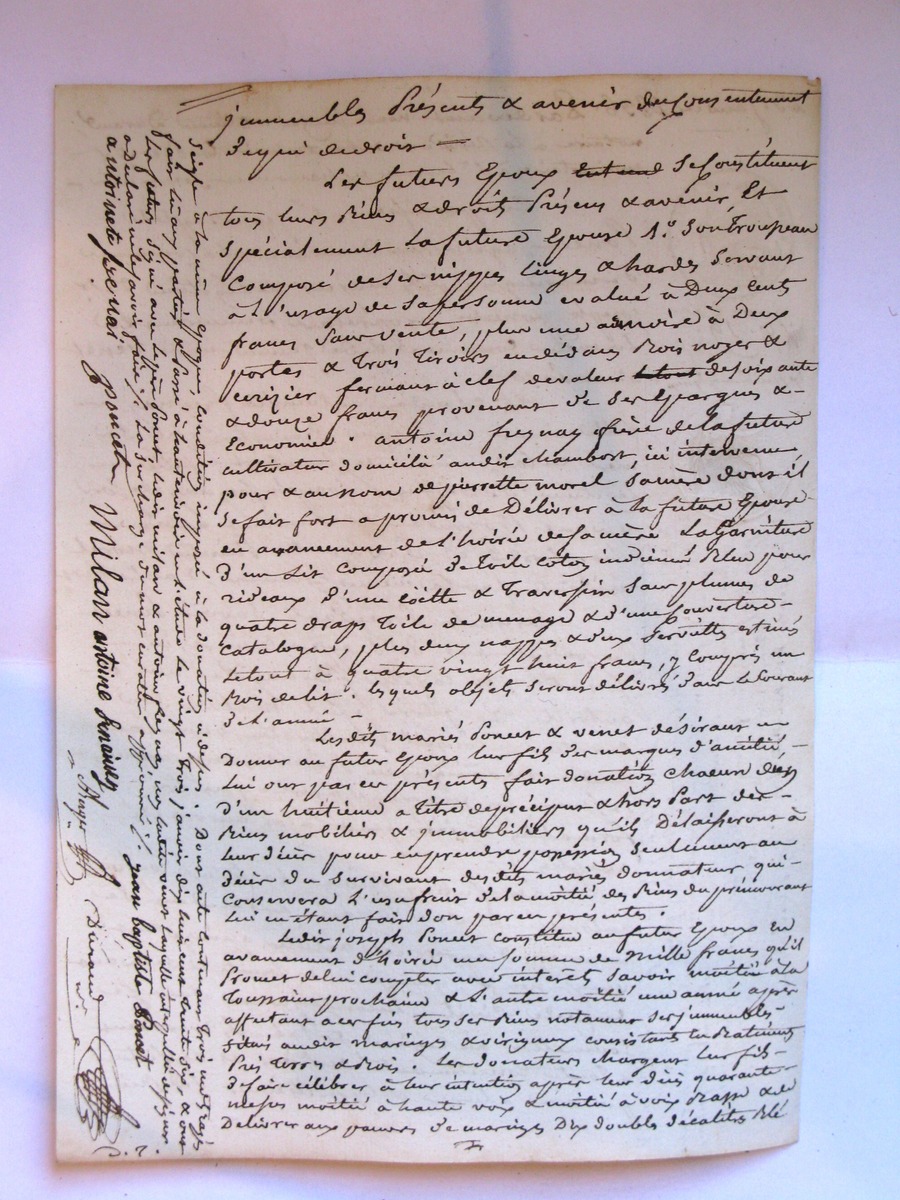 immeubles Présents & avenir du Consentement
de qui de droit =
Les futurs Epoux Se Constituent
tous leurs Biens & droits Présens & avenir, Et
Spécialement La future Epouse 1.° Son Troupeau
Composé de Ses nippes Linges & hardes Servant
à L'usage de Sa personne evalué à Deux Cents
francs Sans vente, plus une armoire à Deux
portes & Trois Tiroirs en dédans Bois noyer &
Cerizier fermant à clef de valeur de Soixante
& douze francs provenant de Ses Epargnes &
Economies. antoine freynay frère de la future
cultivateur domicilié audit Chambost, ici intervenu
pour & au nom de pierrette morel Sa mère dont il
Se fait fort a promis de Délivrer à la future Epouse
en avancement de L'hoirie de Sa mère La Garniture
d'un Lit Composé de Toile Coton Bleu pour
rideaux d'une Coëtte & Traversin Sans plumes de
quatre draps Toile de menage & d'une Couverture
Catalogne, plus deux nappes & deux Serviettes estimés
Le tout à quatre vingt huit francs, y Compris un
Bois de lit. Lesquels objets Seront délivrés dans Le Courant
de L'année =
Les dits mariés Poncet & venet désirant
Donner au futur Epoux Leur fils des marques d'amitié,
Lui ont par ces présents fait donation chacun
d'un huitième à Titre de préciput & hors Part des
Biens mobiliers & immobiliers qu'ils Délaisseront à
Leur décès pour en prendre possession Seulement au
décès du Survivant des dits mariés donnateur qui
Conservera L'usufruit de La moitié des Biens du prémourant
Lui en étant fait don par ces présentes.
Ledit joseph Poncet Constitue au futur Epoux en
avancement d'hoirie une Somme de Mille francs qu'il
Promet de lui Compter avec intérêt Savoir moitié à la
Toussaint prochaine & L'autre moitié une année après
affectant à ces fins tous Ses Biens notamment Ses immeubles
Situés audit maringes & virigneux Consistant en Batiments
Prés Terres & Bois. Les donateurs chargent Leur fils
de faire Célébrer à leur intention après leur décès quarante
messes moitié à haute voix & moitié à voix Basse & de
Delivrer aux pauvres de maringes Dix doubles décalitres Blé
Seigle à la même Epoque, Condition imposée à la donation ci dessus. Dont acte Contenant Trois
fait Lu aux parties & Passé à en L'étude Le vingt Trois janvier dix huit cent trente Six & ont
Les futurs Signé avec Le père Poncet, Ledit milan & antoine freynay, non Ladite venet Laquelle interpellée de Signer
a Déclaré ne le Savoir faire. La Surcharge du mot approuvée. jean baptiste Poncet
antoinete freinai poncet Milan antoine frainay
Durand